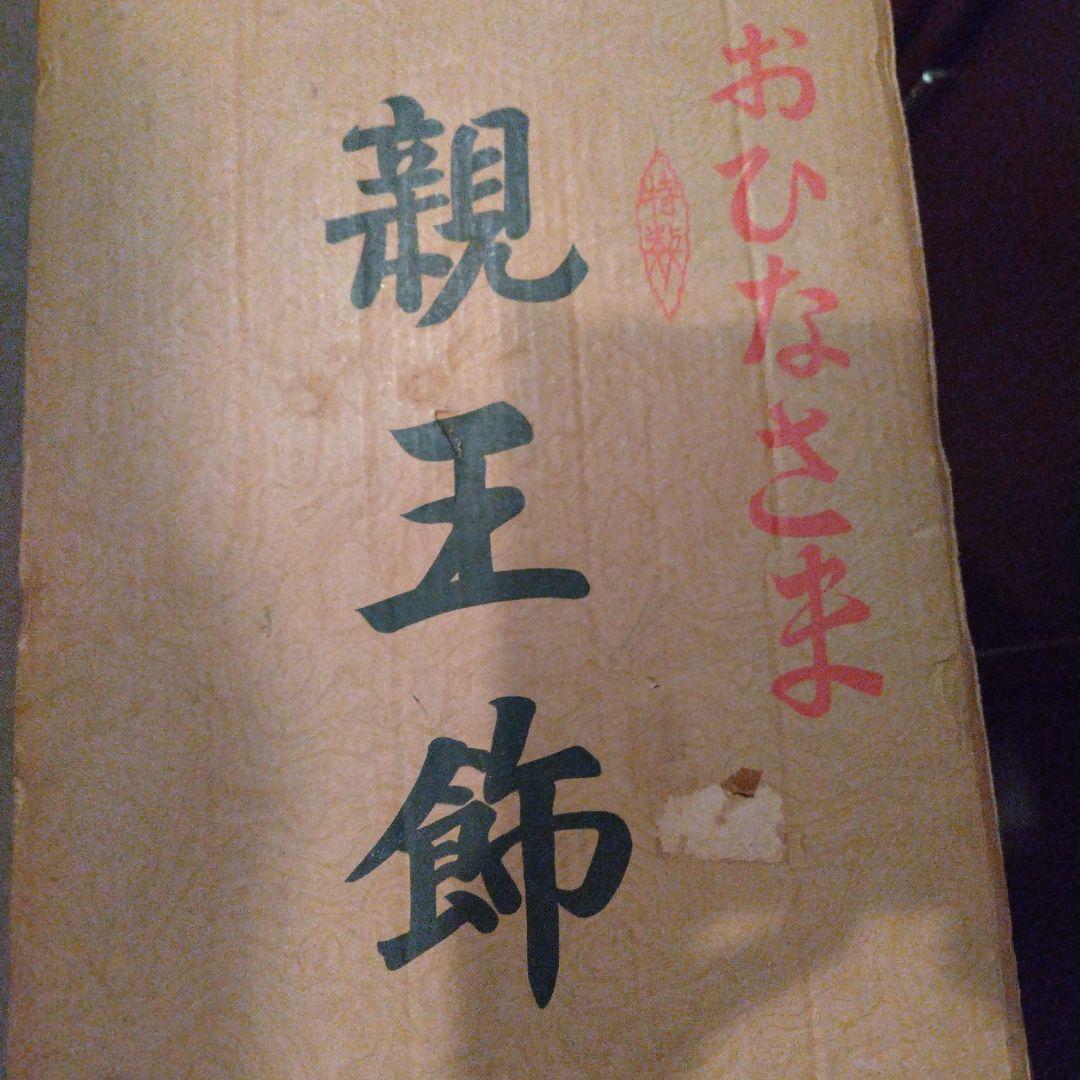 おひなさま
特製
親王飾